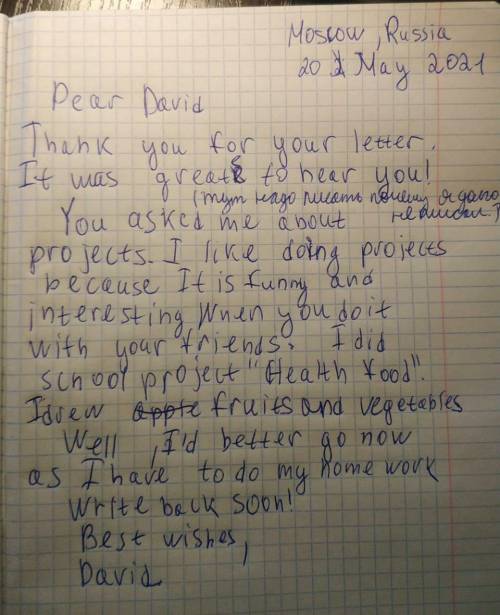 Moscow, Russia
20 May 2021
Dear David
Thank you for your letter.
It was great to hear you!
(тут надо писать почему я долго
You asked me about не писал.)
projects. I like doing projects
because It is funny and
interesting When you do it
with your friends. I did
school project "Health food".
I drew apple fruits and vegetables
Well, I'd better go now
as I have to do my home work
Write back soon!
Best wishes,
David